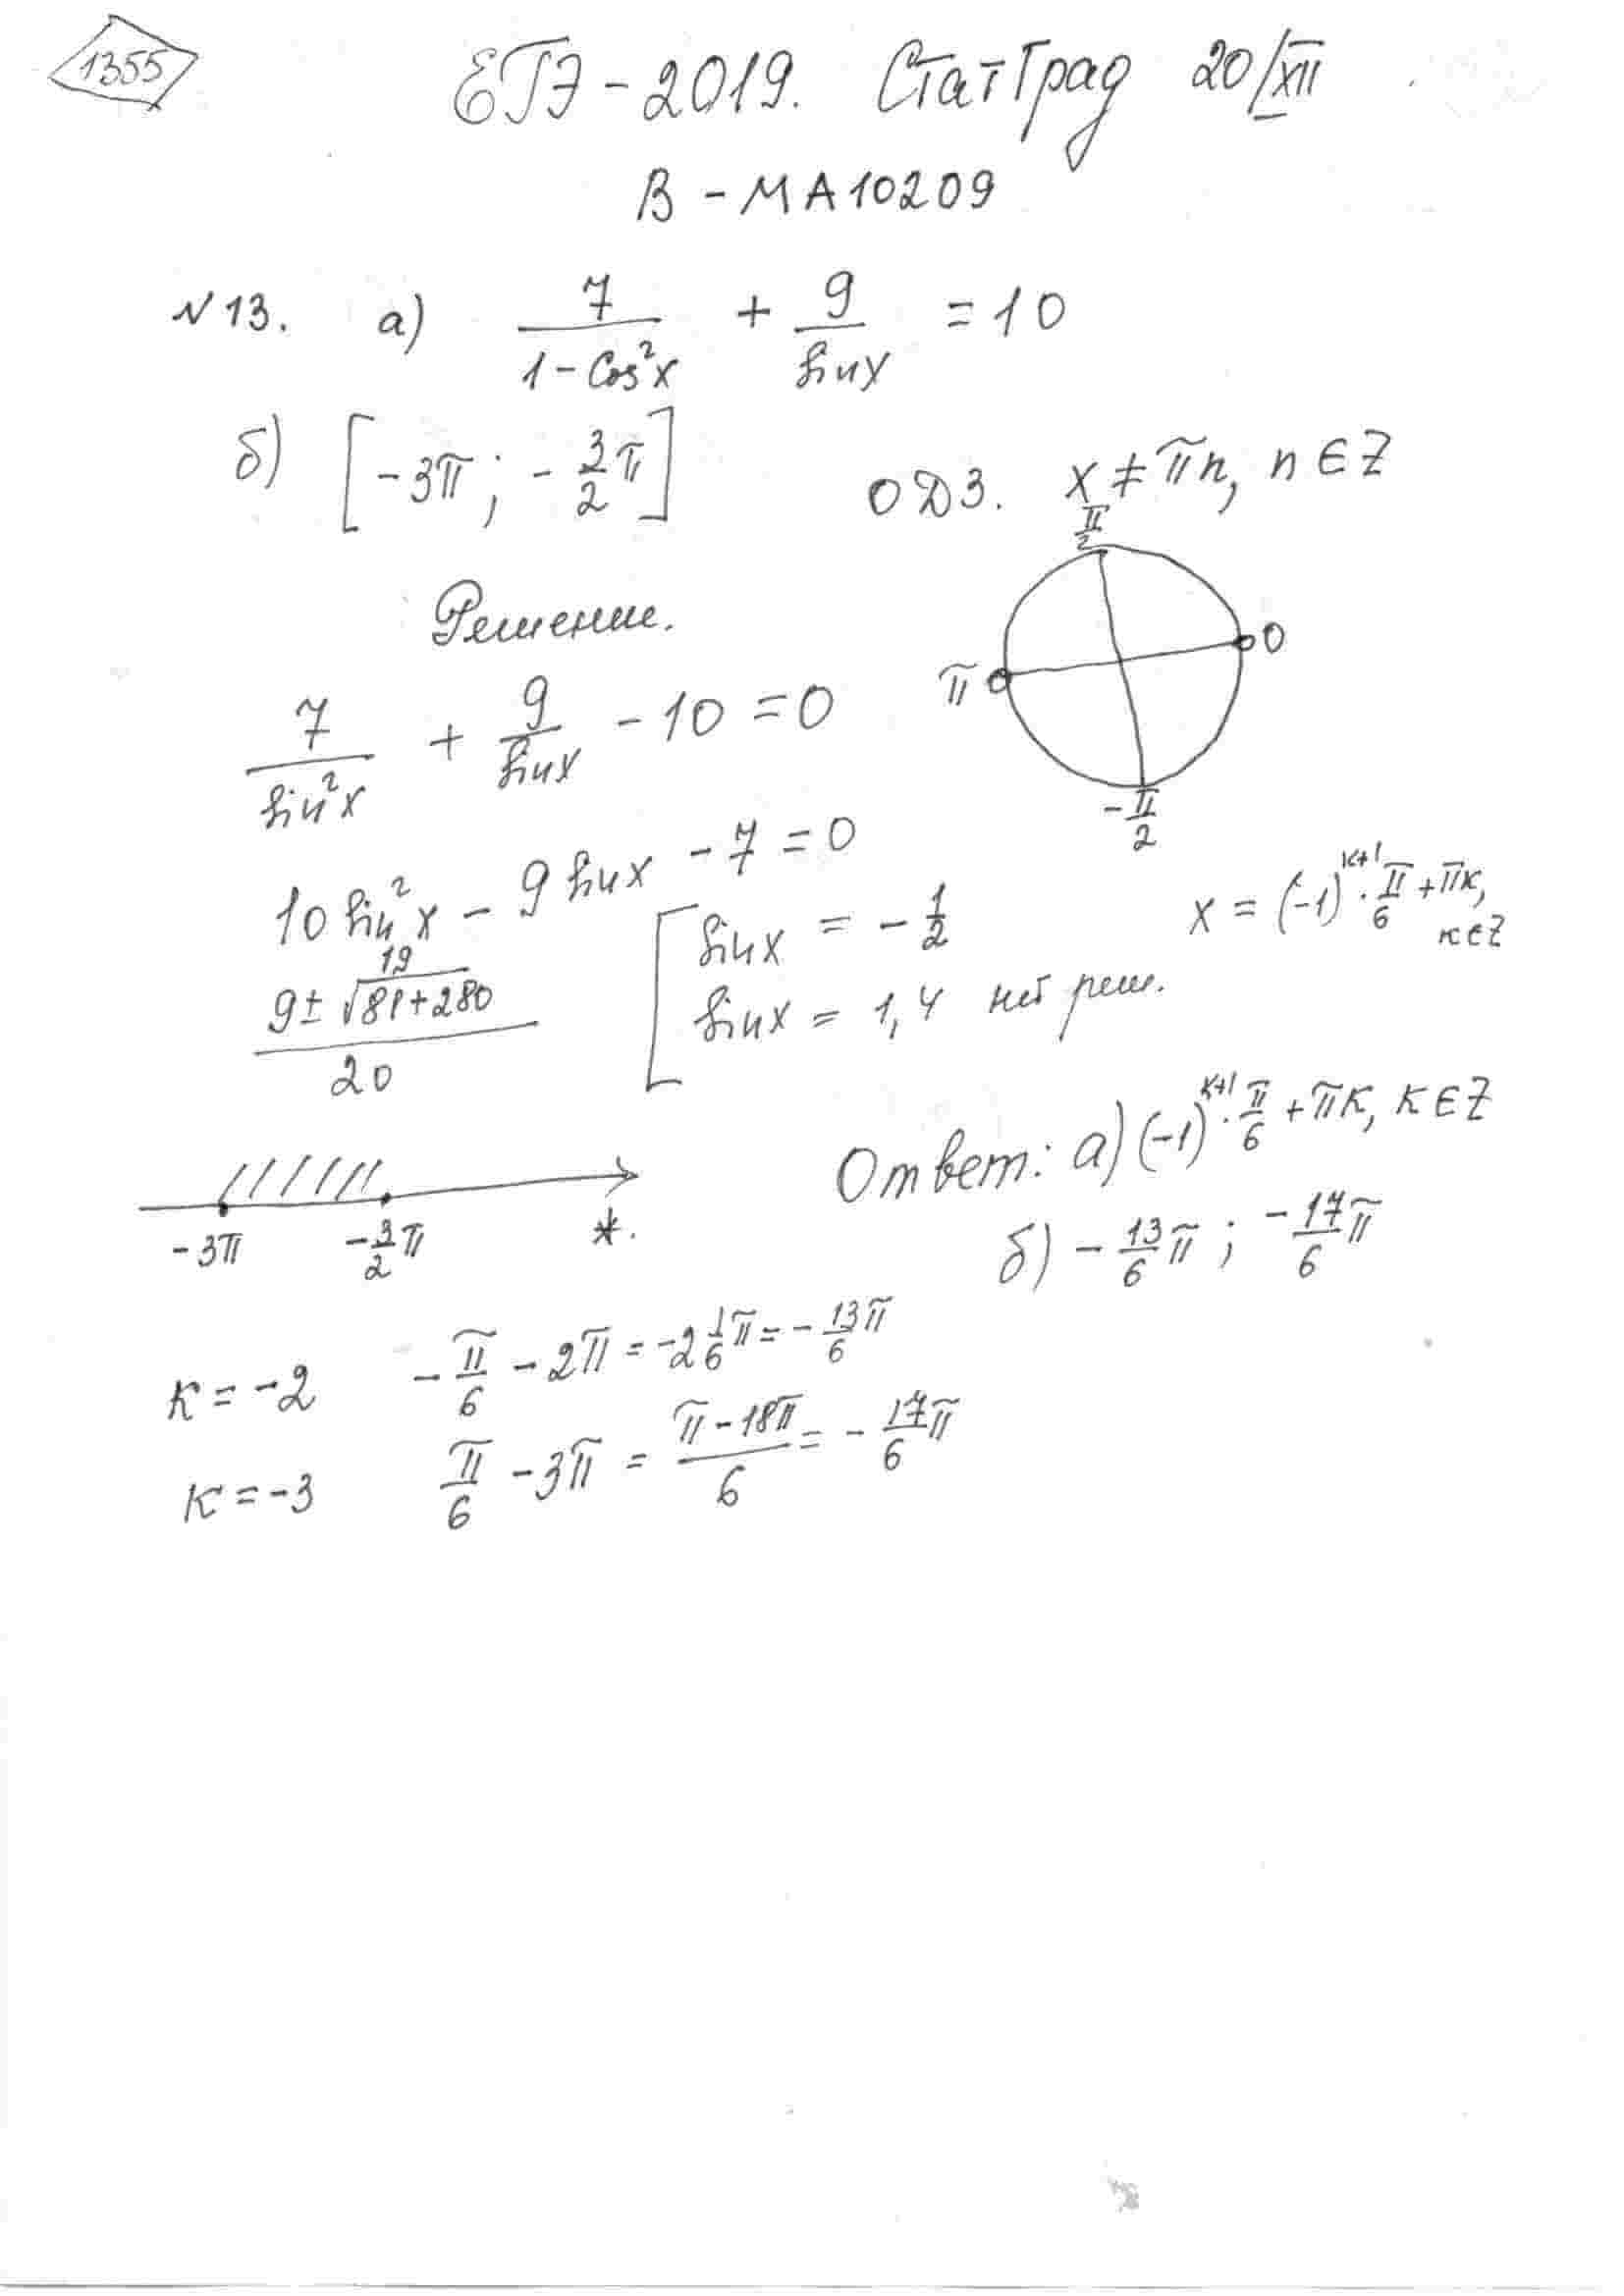 1355
ЕГЭ - 2019. СтатГрад 20/XII
В - МА10209
№13. а) 7/(1 - cos²x) + 9/sinx = 10
б) [-3π; -3/2 π]
ОДЗ. x ≠ πn, n ∈ Z
π/2
0
π
-π/2
Решение.
7/sin²x + 9/sinx - 10 = 0
10 sin²x - 9 sinx - 7 = 0
19
(9 ± √(81+280))/20
[ sinx = -1/2
sinx = 1,4 нет реш.
x = (-1)^(k+1) · π/6 + πk, k ∈ Z
-3π -3/2 π *.
Ответ: а) (-1)^(k+1) · π/6 + πk, k ∈ Z
б) -13/6 π ; -17/6 π
k = -2 -π/6 - 2π = -2 1/6 π = -13/6 π
k = -3 π/6 - 3π = (π - 18π)/6 = -17/6 π